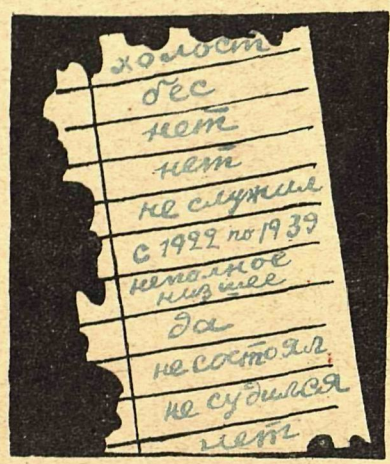 холост
бес
нет
нет
не служил
с 1922 по 1939
неполное
низшее
да
не состоял
не судился
нет